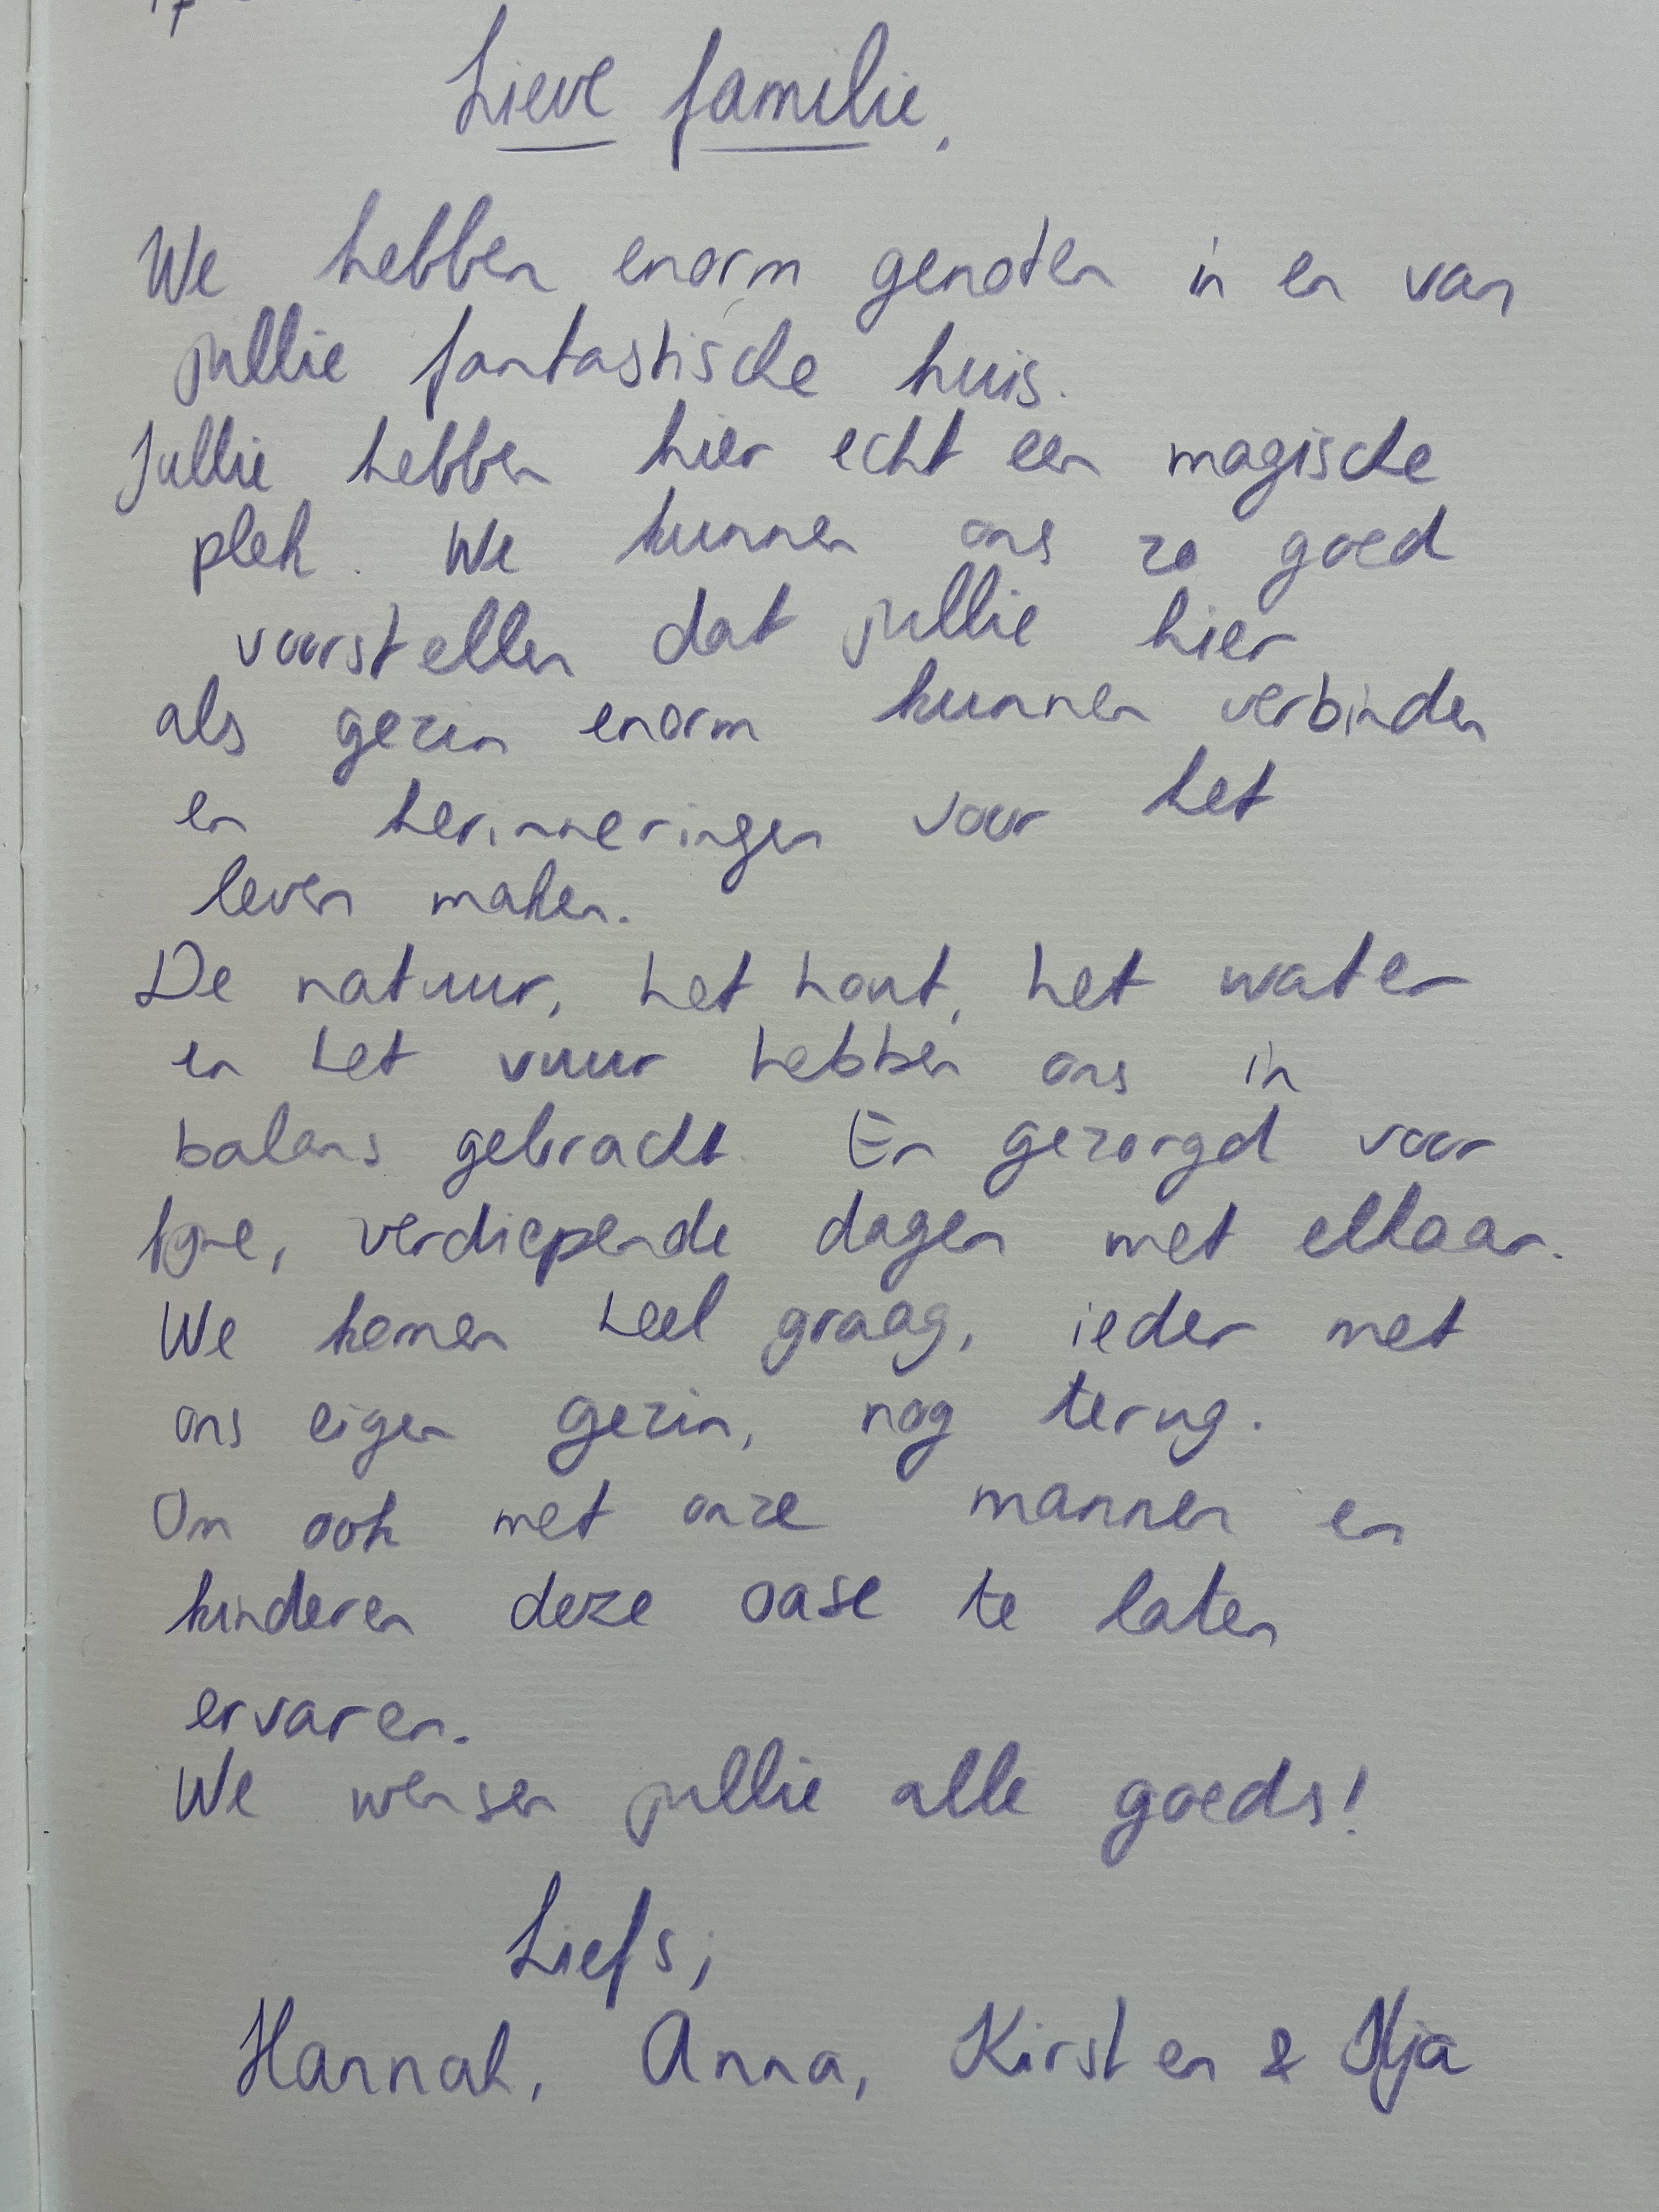 Lieve familie,
We hebben enorm genoten in en van
jullie fantastische huis.
Jullie hebben hier echt een magische
plek. We kunnen ons zo goed
voorstellen dat jullie hier
als gezin enorm kunnen verbinden
en herinneringen voor het
leven maken.
De natuur, het hout, het water
en het vuur hebben ons in
balans gebracht. En gezorgd voor
fijne, verdiepende dagen met elkaar.
We komen heel graag, ieder met
ons eigen gezin, nog terug.
Om ook met onze mannen en
kinderen deze oase te laten
ervaren.
We wensen jullie alle goeds!
Liefs,
Hannah, Anna, Kirsten & Ilja